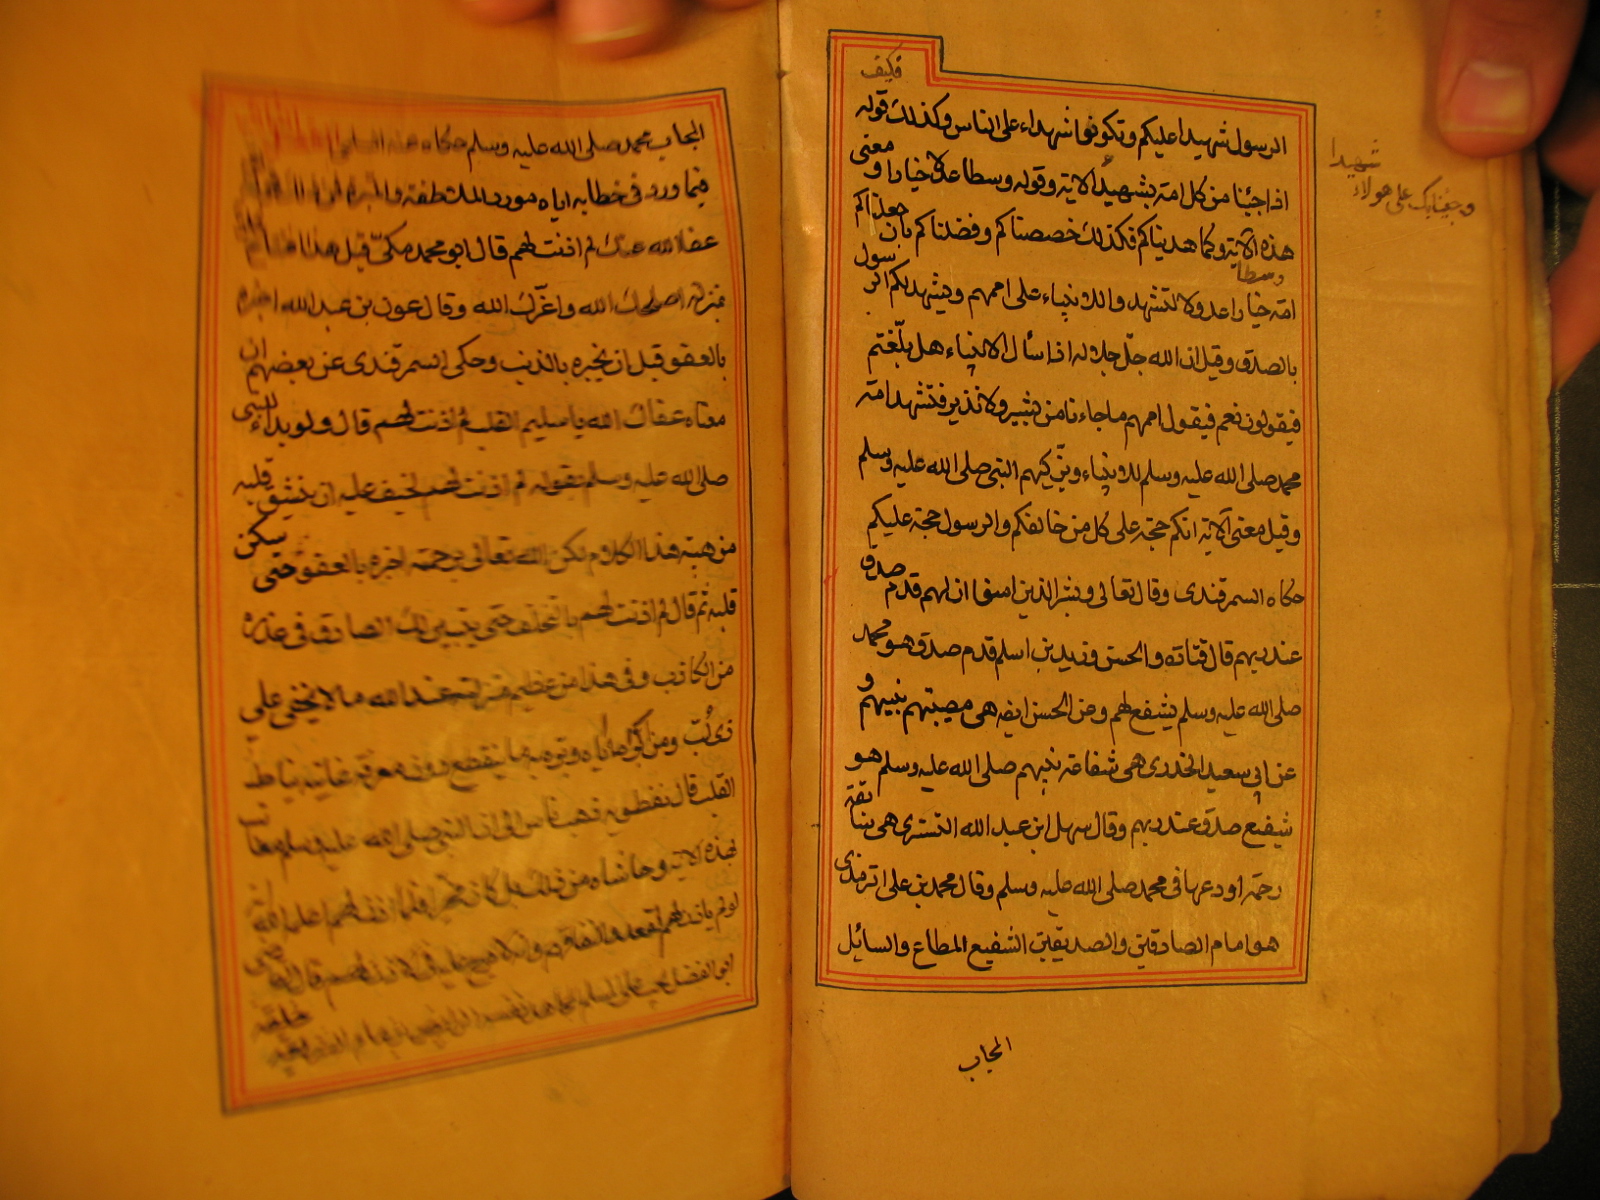 فكيف
الرسول شهيدا عليكم وتكونوا شهداء على الناس وكذلك قوله
اذا جئنا من كل امة بشهيد الاية وقوله وسطا عدلا خيارا و معنى
هذه الآية وكما هديناكم فكذلك خصصناكم وفضلناكم بان جعلناكم
وسطا
امة خيارا عدولا لتشهدوا للانبياء على اممهم ويشهد لكم الرسول
بالصدق وقيل ان الله جل جلاله اذا سأل الانبياء هل بلّغتم
فيقولون نعم فيقول اممهم ما جاءنا من بشير ولا نذير فتشهد امة
محمد صلى الله عليه وسلم للانبياء ويزكيهم النبى صلى الله عليه وسلم
وقيل معنى الآية انكم حجة على كل من خالفكم والرسول حجة عليكم
حكاه السمرقندى وقال تعالى وبشر الذين امنوا ان لهم قدم صدق
عند ربهم قال قتاده والحسن وزيد بن اسلم قدم صدق هو محمد
صلى الله عليه وسلم يشفع لهم وعن الحسن ايضه هى مصيبتهم بنبيهم و
عن ابى سعيد الخدرى هى شفاعة نبيهم صلى الله عليه وسلم هو
شفيع صدق عند ربهم وقال سهل ابن عبد الله التسترى هى سابقة
رحمة اودعها فى محمد صلى الله عليه وسلم وقال محمد بن على اترمذى
هو امام الصادقين والصديقين الشفيع المطاع والسايل
المجاب
شهيدا
وجئنا بك على هولاء
المجاب محمد صلى الله عليه وسلم حكاه عنه السلمى
فيما ورد فى خطابه اياه مورد الملاطفة والمبرة
عفا الله عنك لم اذنت لهم قال ابو محمد مكىّ قيل هذا
بمنزلة اصلحك الله واعزّك الله وقال عون بن عبد الله اخبره
بالعفو قبل ان يخبره بالذنب وحكى السمرقندى عن بعضهم ان
معناه عفاك الله يا سليم القلب لم اذنت لهم قال ولو بدا النبى
صلى الله عليه وسلم بقوله لم اذنت لهم لخيف عليه ان ينشق قلبه
من هيبة هذا الكلام لكن الله تعالى برحمته اخبره بالعفو حتى سكن
قلبه ثم قال لم اذنت لهم بالتخلف حتى يتبين لك الصادق فى عذره
من الكاذب وفى هذا من عظيم منزلته عند الله ما لا يخفى على
ذى لُبّ ومن اكرامه اياه وبره به ما ينقطع دون معرفة غايته نياط
القلب قال نفطويه ذهب ناس الى ان النبى صلى الله عليه وسلم معاتب
بهذه الاية وحاشاه من ذلك بل كان مخيرا فلما اذن لهم اعلمه الله
لو لم ياذن لهم لقعدوا لنفاقهم وانه لا حرج عليه فى الاذن لهم قال القاضى
ابو الفضل يجب على المسلم المجاهد نفسه